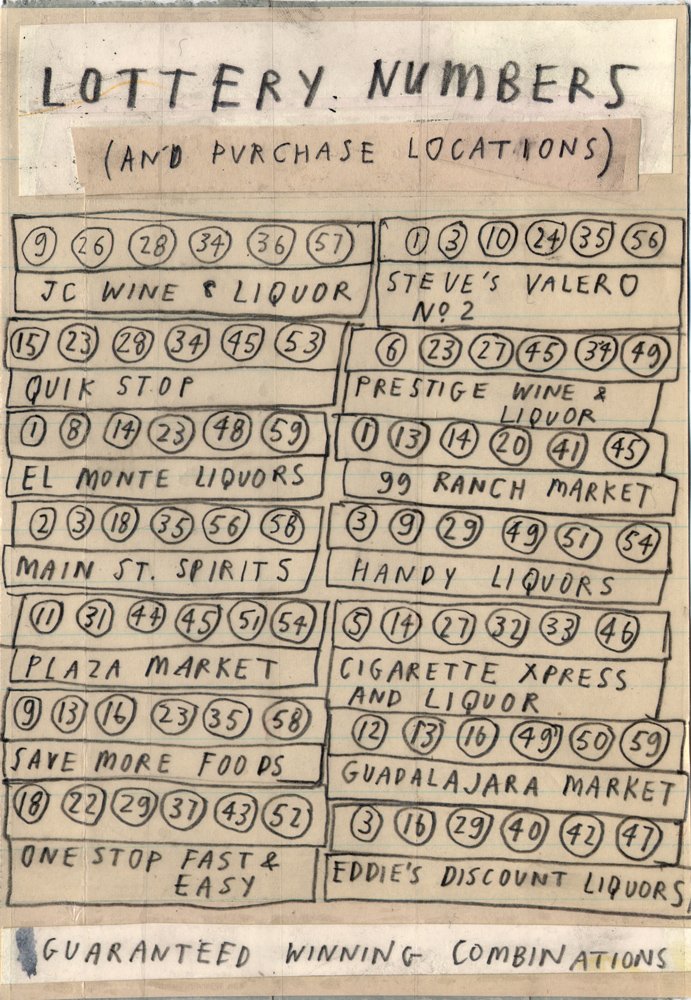 LOTTERY NUMBERS
(AND PURCHASE LOCATIONS)
9 26 28 34 36 57
JC WINE & LIQUOR
15 23 28 34 45 53
QUIK STOP
1 8 14 23 48 59
EL MONTE LIQUORS
2 3 18 35 56 58
MAIN ST. SPIRITS
11 31 44 45 51 54
PLAZA MARKET
9 13 16 23 35 58
SAVE MORE FOODS
18 22 29 37 43 52
ONE STOP FAST &
EASY
1 3 10 24 35 56
STEVE'S VALERO
No. 2
6 23 27 45 34 49
PRESTIGE WINE &
LIQUOR
1 13 14 20 41 45
99 RANCH MARKET
3 9 29 49 51 54
HANDY LIQUORS
5 14 27 32 33 46
CIGARETTE XPRESS
AND LIQUOR
12 13 16 49 50 59
GUADALAJARA MARKET
3 16 29 40 42 47
EDDIE'S DISCOUNT LIQUORS
GUARANTEED WINNING COMBINATIONS